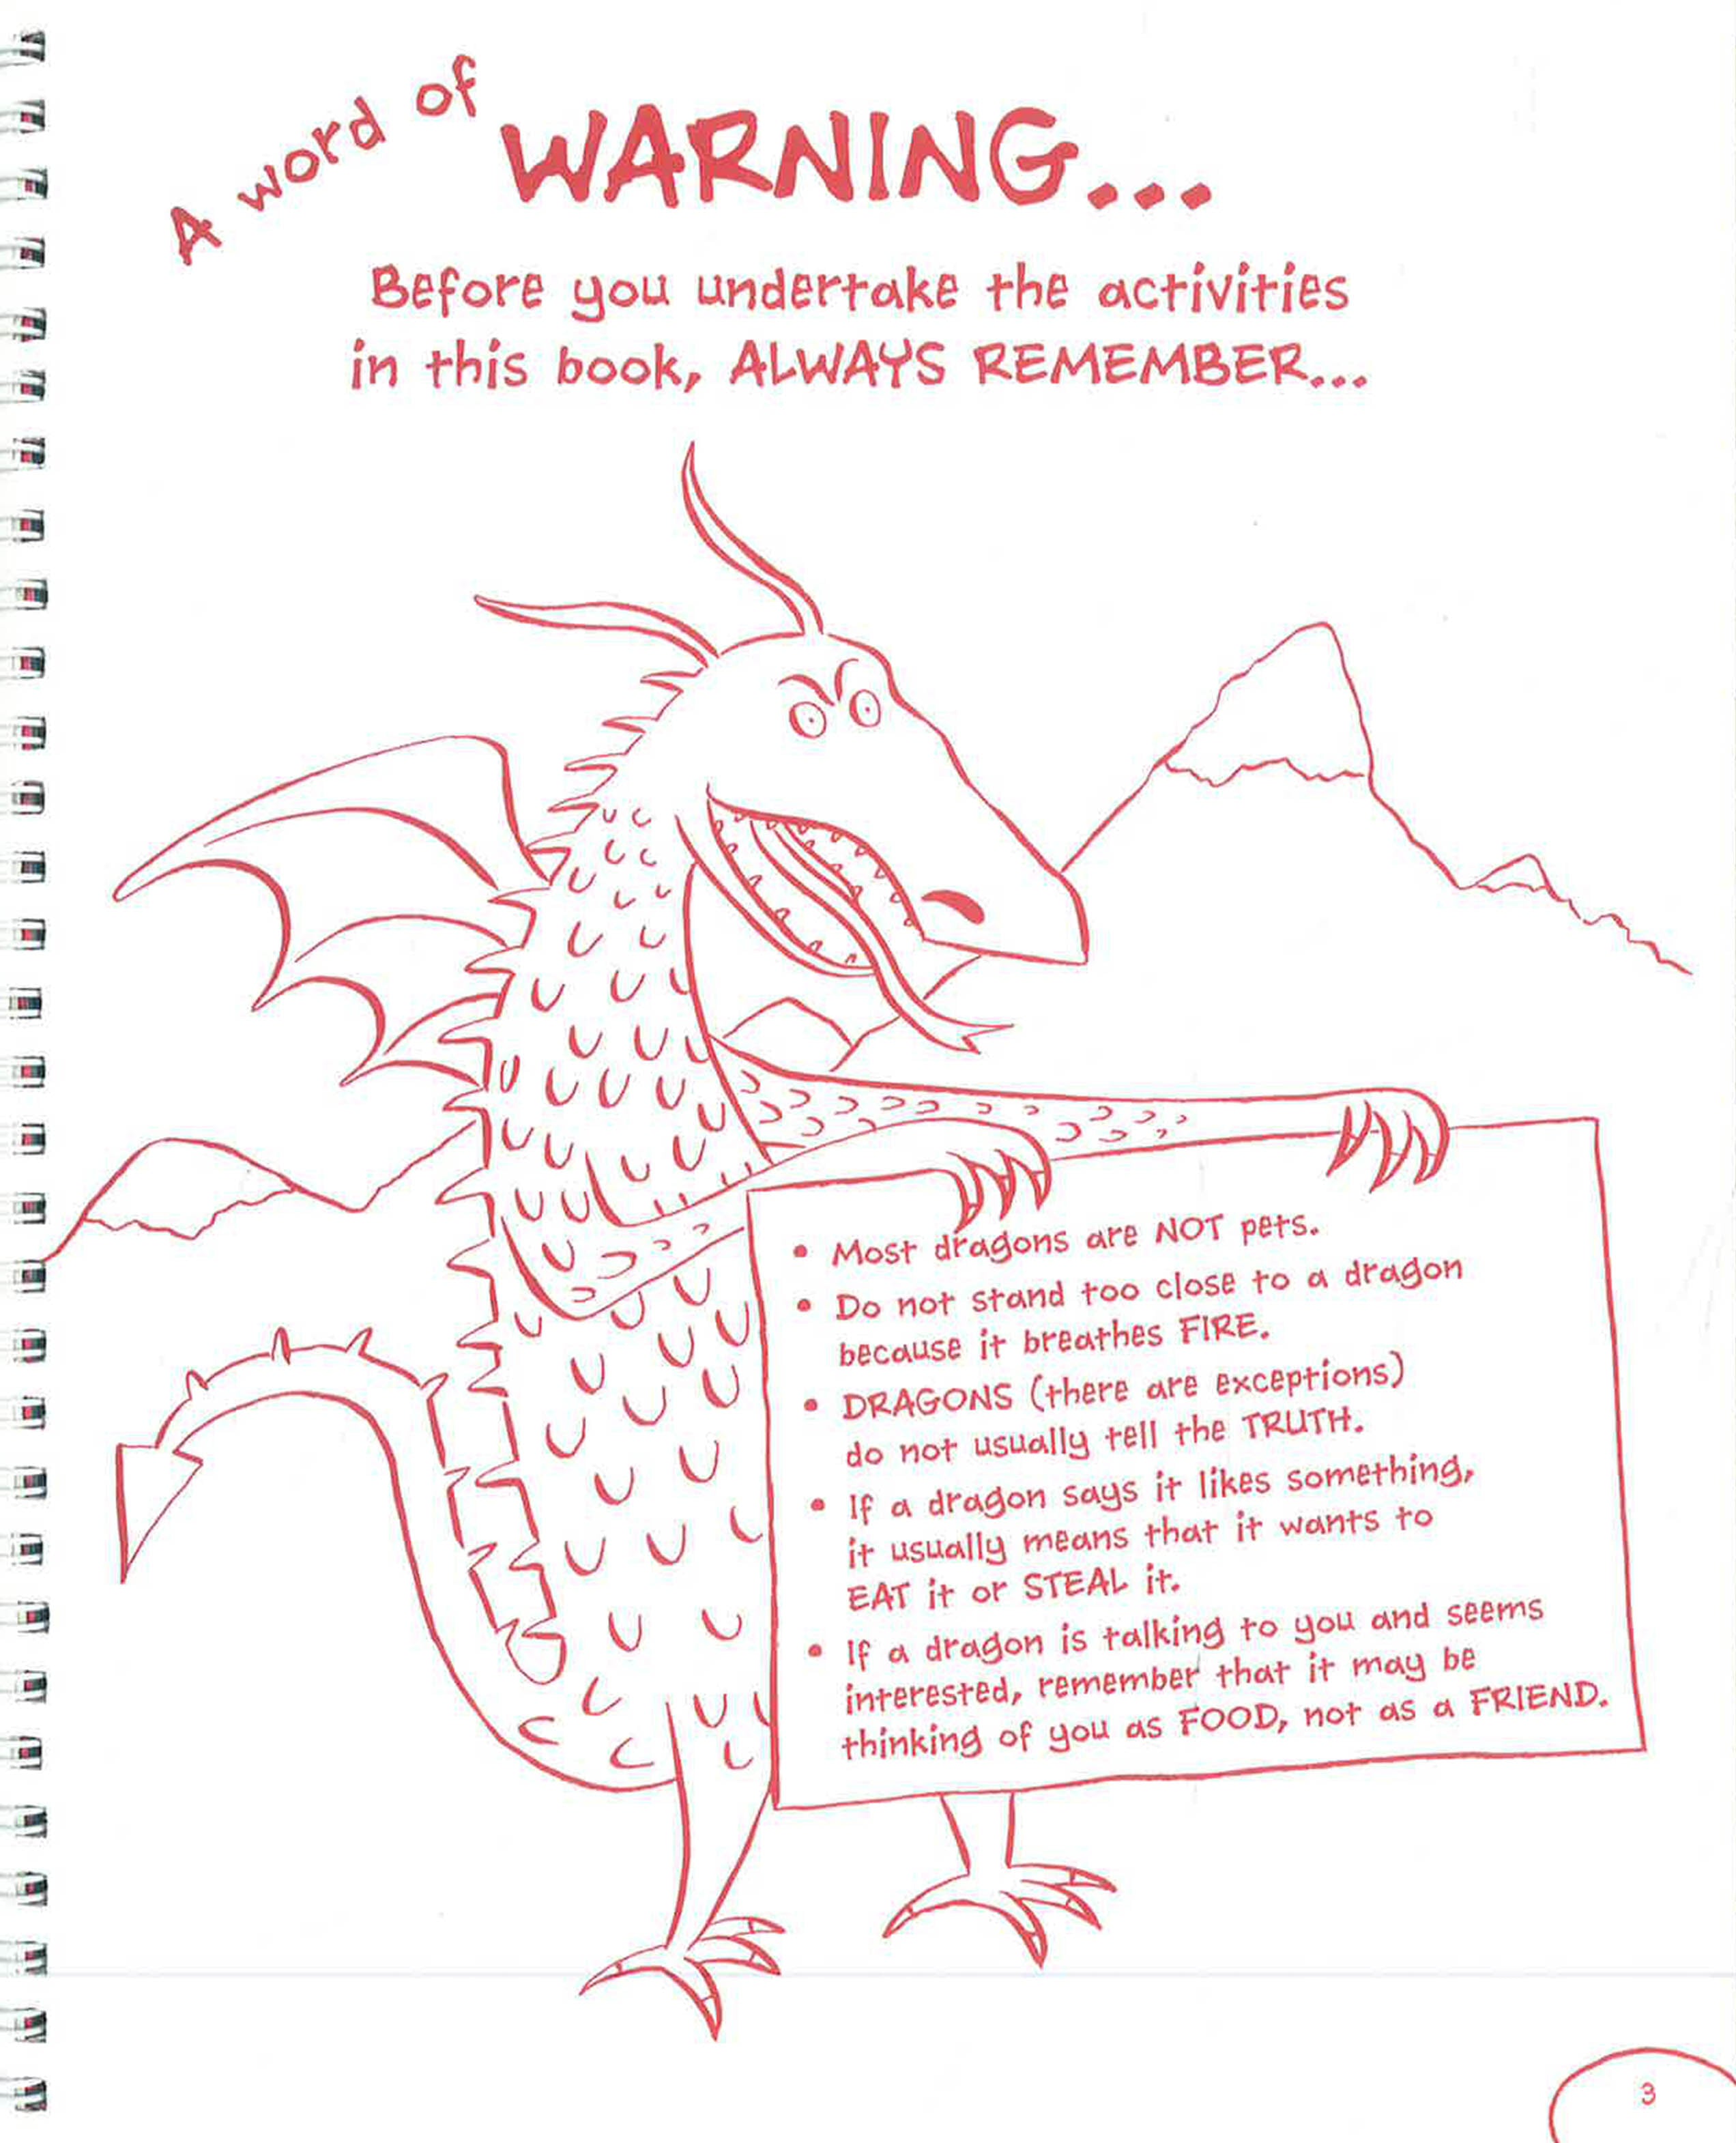 A word of WARNING...
Before you undertake the activities
in this book, ALWAYS REMEMBER...
• Most dragons are NOT pets.
• Do not stand too close to a dragon
because it breathes FIRE.
• DRAGONS (there are exceptions)
do not usually tell the TRUTH.
• If a dragon says it likes something,
it usually means that it wants to
EAT it or STEAL it.
• If a dragon is talking to you and seems
interested, remember that it may be
thinking of you as FOOD, not as a FRIEND.
3